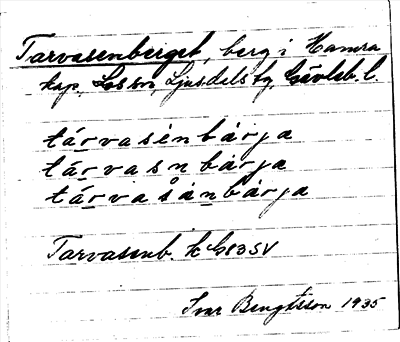 Tarvasenberget, berg i Hamra
kap, Loson, Ljusdels tg, Gävleb. l.
tárvasènbárja
tárvasnbárja
tárvasånbárja
Tarvasenb. k G83SV
Ivar Bengtsson 1935